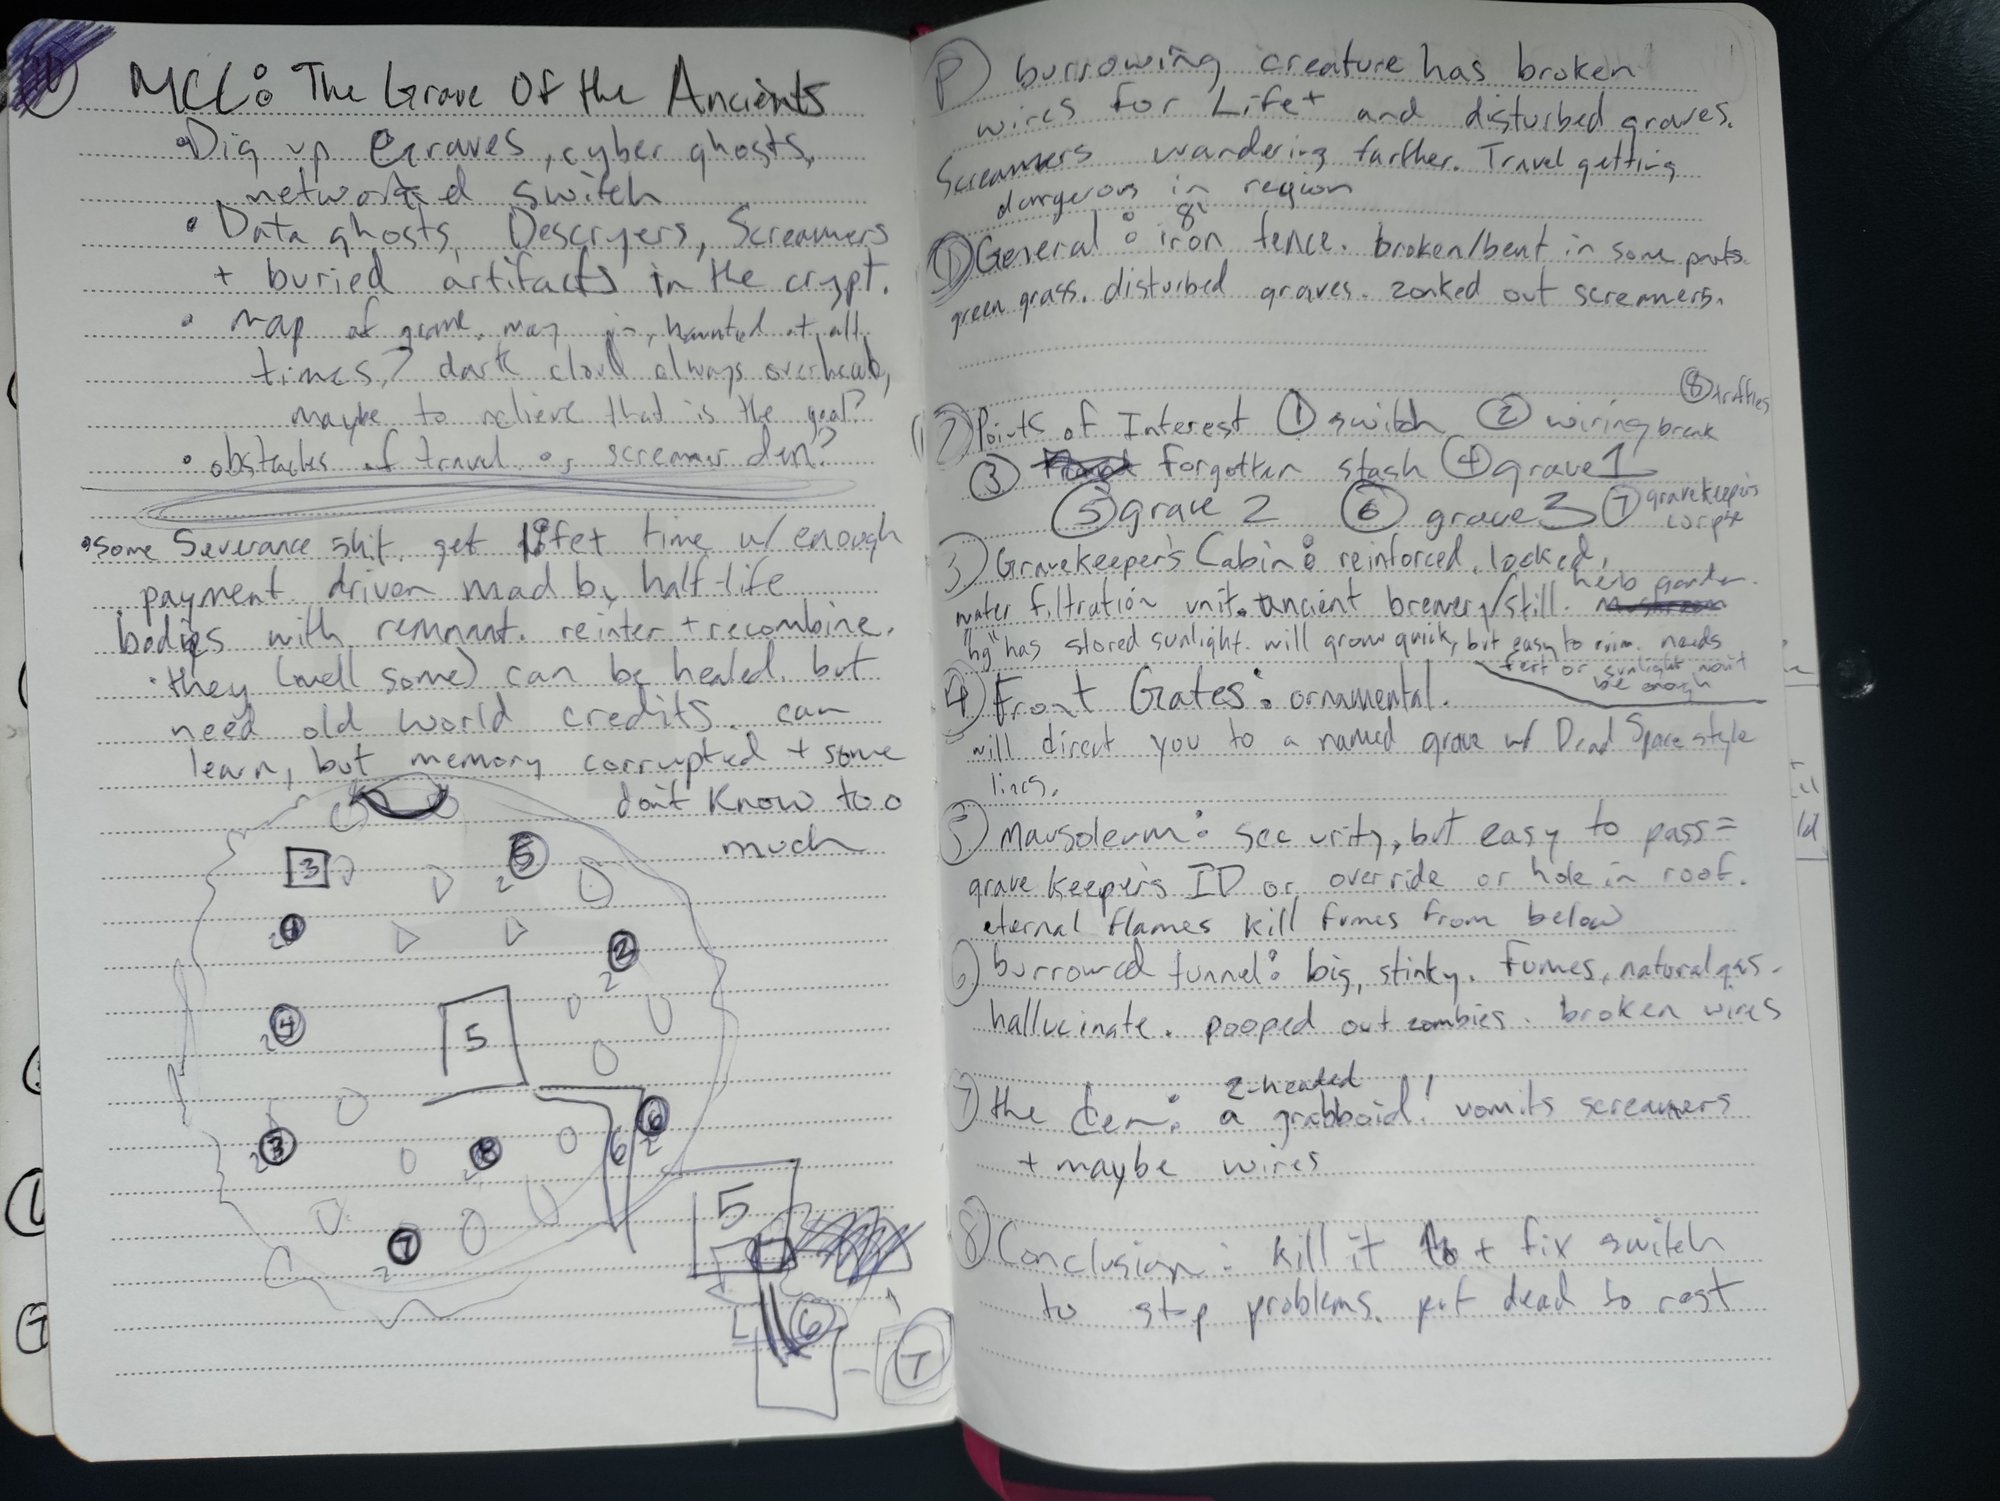 MCC: The Grave Of the Ancients
• Dig up Egraves, cyber ghosts,
networked switch
• Data ghosts, Descryers, Screamers
+ buried artifacts in the crypt.
• map of grave may haunted at all
times? dark cloud always overhead,
maybe to relieve that is the goal?
• obstacles of travel or screamer den?
• some Severance shit. get life+ time w/ enough
payment driven mad by half-life
bodies with remnant. reinter + recombine.
• they (well some) can be healed. but
need old world credits. can
learn, but memory corrupted + some
don't know too
much
3
5
2
1
2
2
4
2
5
3
2
8
2
6
6
2
7
2
5
6
7
P burrowing creature has broken
wires for Life+ and disturbed graves.
Screamers wandering farther. Travel getting
dangerous in region
① General: 8' iron fence. broken/bent in some parts.
green grass. disturbed graves. zonked out screamers.
⑧ truffles
② Points of Interest ① switch ② wiring break
③ forgotten stash ④ grave 1
⑤ grave 2 ⑥ grave 3 ⑦ gravekeeper's
corpse
③ Gravekeeper's Cabin: reinforced, locked,
water filtration unit. ancient brewery/still. herb garden.
"bg" has stored sunlight. will grow quick, but easy to ruin. needs
fert or sunlight won't
be enough
④ Front Gates: ornamental.
will direct you to a named grave w/ Dead Space style
lines.
⑤ Mausoleum: security, but easy to pass =
gravekeeper's ID or override or hole in roof.
eternal flames kill fumes from below
⑥ burrowed tunnel: big, stinky. Fumes, natural gas.
hallucinate. pooped out zombies. broken wires
⑦ the den: a 2-headed grabboid! vomits screamers
+ maybe wires
⑧ Conclusion: kill it + fix switch
to stop problems. put dead to rest